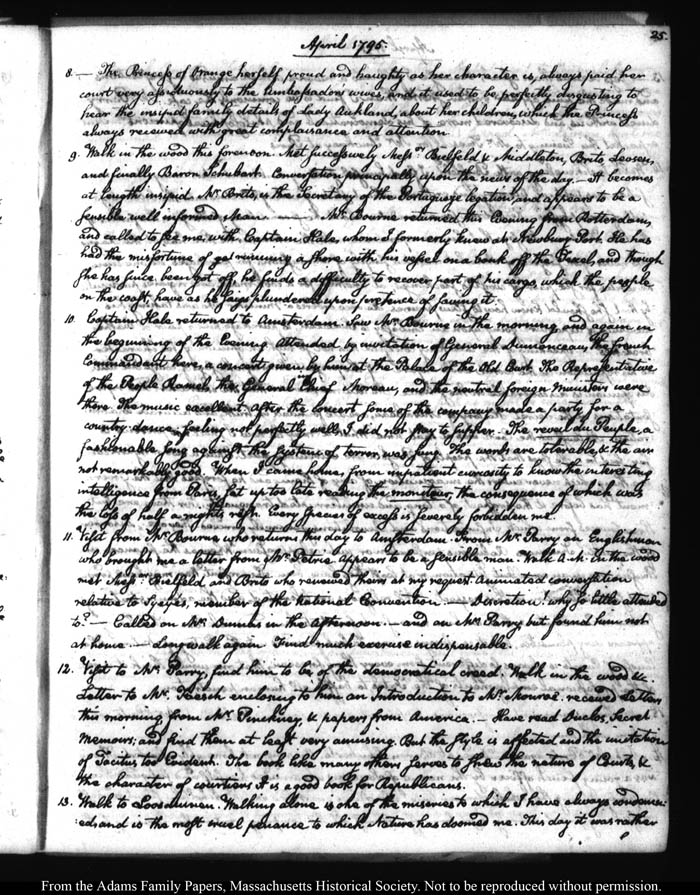 25.
April 1795.
8. — The Princess of Orange herself, proud and haughty as her character is, always paid her
court very assiduously to the Ambassadors wives, and it used to be perfectly disgusting to
hear the insipid family details of Lady Auckland, about her children, which the Princess
always received with great complaisance and attention.
9. Walk in the wood this forenoon. Met successively Mess.rs Bielfeld & Middleton, Brito, Levsen,
and finally Baron Schubart. Conversation principally upon the news of the day. — It becomes
at length insipid. Mr. Brito, is the Secretary of the Portuguese legation, and appears to be a
sensible well informed Man. — Mr. Bourne returned this Evening from Rotterdam,
and called to see me, with Captain Hale, whom I formerly knew at Newbury Port. He has
had the misfortune of running a shore, with his vessel on a bank off the Texel, and though
she has since been got off, he finds a difficulty to recover part of his cargo, which the people
on the coast, have as he says plundered upon pretence of saving it.
10. Captain Hale returned to Amsterdam. Saw Mr. Bourne in the morning, and again in
the beginning of the Evening. Attended, by invitation of General Dumonceau, the french
Commandant here, a concert given by him at the Palace of the Old Court. The Representative
of the People Ramel, the General Chief Moreau, and the neutral foreign Ministers were
there. The music excellent. After the concert some of the company made a party for a
country dance. feeling not perfectly well, I did not stay to supper. The reveil du Peuple, a
fashionable song against the System of terror, was sung. The words are tolerable, & the air
not remarkably good. When I came home, from impatient curiosity to know the interesting
intelligence from Paris, sat up too late reading the moniteur, the consequence of which was
the loss of half a nights rest. Every species of excess is severely forbidden me.
11. Visit from Mr. Bourne who returns this day to Amsterdam. From Mr. Parry an Englishman
who brought me a letter from Mr. Petrie. Appears to be a sensible man. Walk A.M. In the wood
met Mess.rs Bielfeld, and Brito who renewed theirs at my request. Animated conversation
relative to Syeyes, member of the National Convention. — Discretion! why so little attended
to? — Called on Mr. Dumas in the Afternoon. — and on Mr. Parry, but found him not
at home. — Long walk again. Find much exercise indispensable.
12. Visit to Mr. Parry, find him to be of the democratical creed. Walk in the wood &c.
Letter to Mr. Taesch enclosing to him an Introduction to Mr. Monroe. received Letters
this morning from Mr. Pinckney, & papers from America. — Have read Duclos, Secret
Memoirs; and find them at least very amusing. But the style is affected and the imitation
of Tacitus too evident. The book like many others serves to shew the nature of Courts, &
the character of courtiers. It is a good book for Republicans.
13. Walk to Loosduinen. Walking alone is one of the miseries to which I have always condemn-
ed, and is the most cruel penance to which Nature has doomed me. This day it was rather
From the Adams Family Papers, Massachusetts Historical Society. Not to be reproduced without permission.